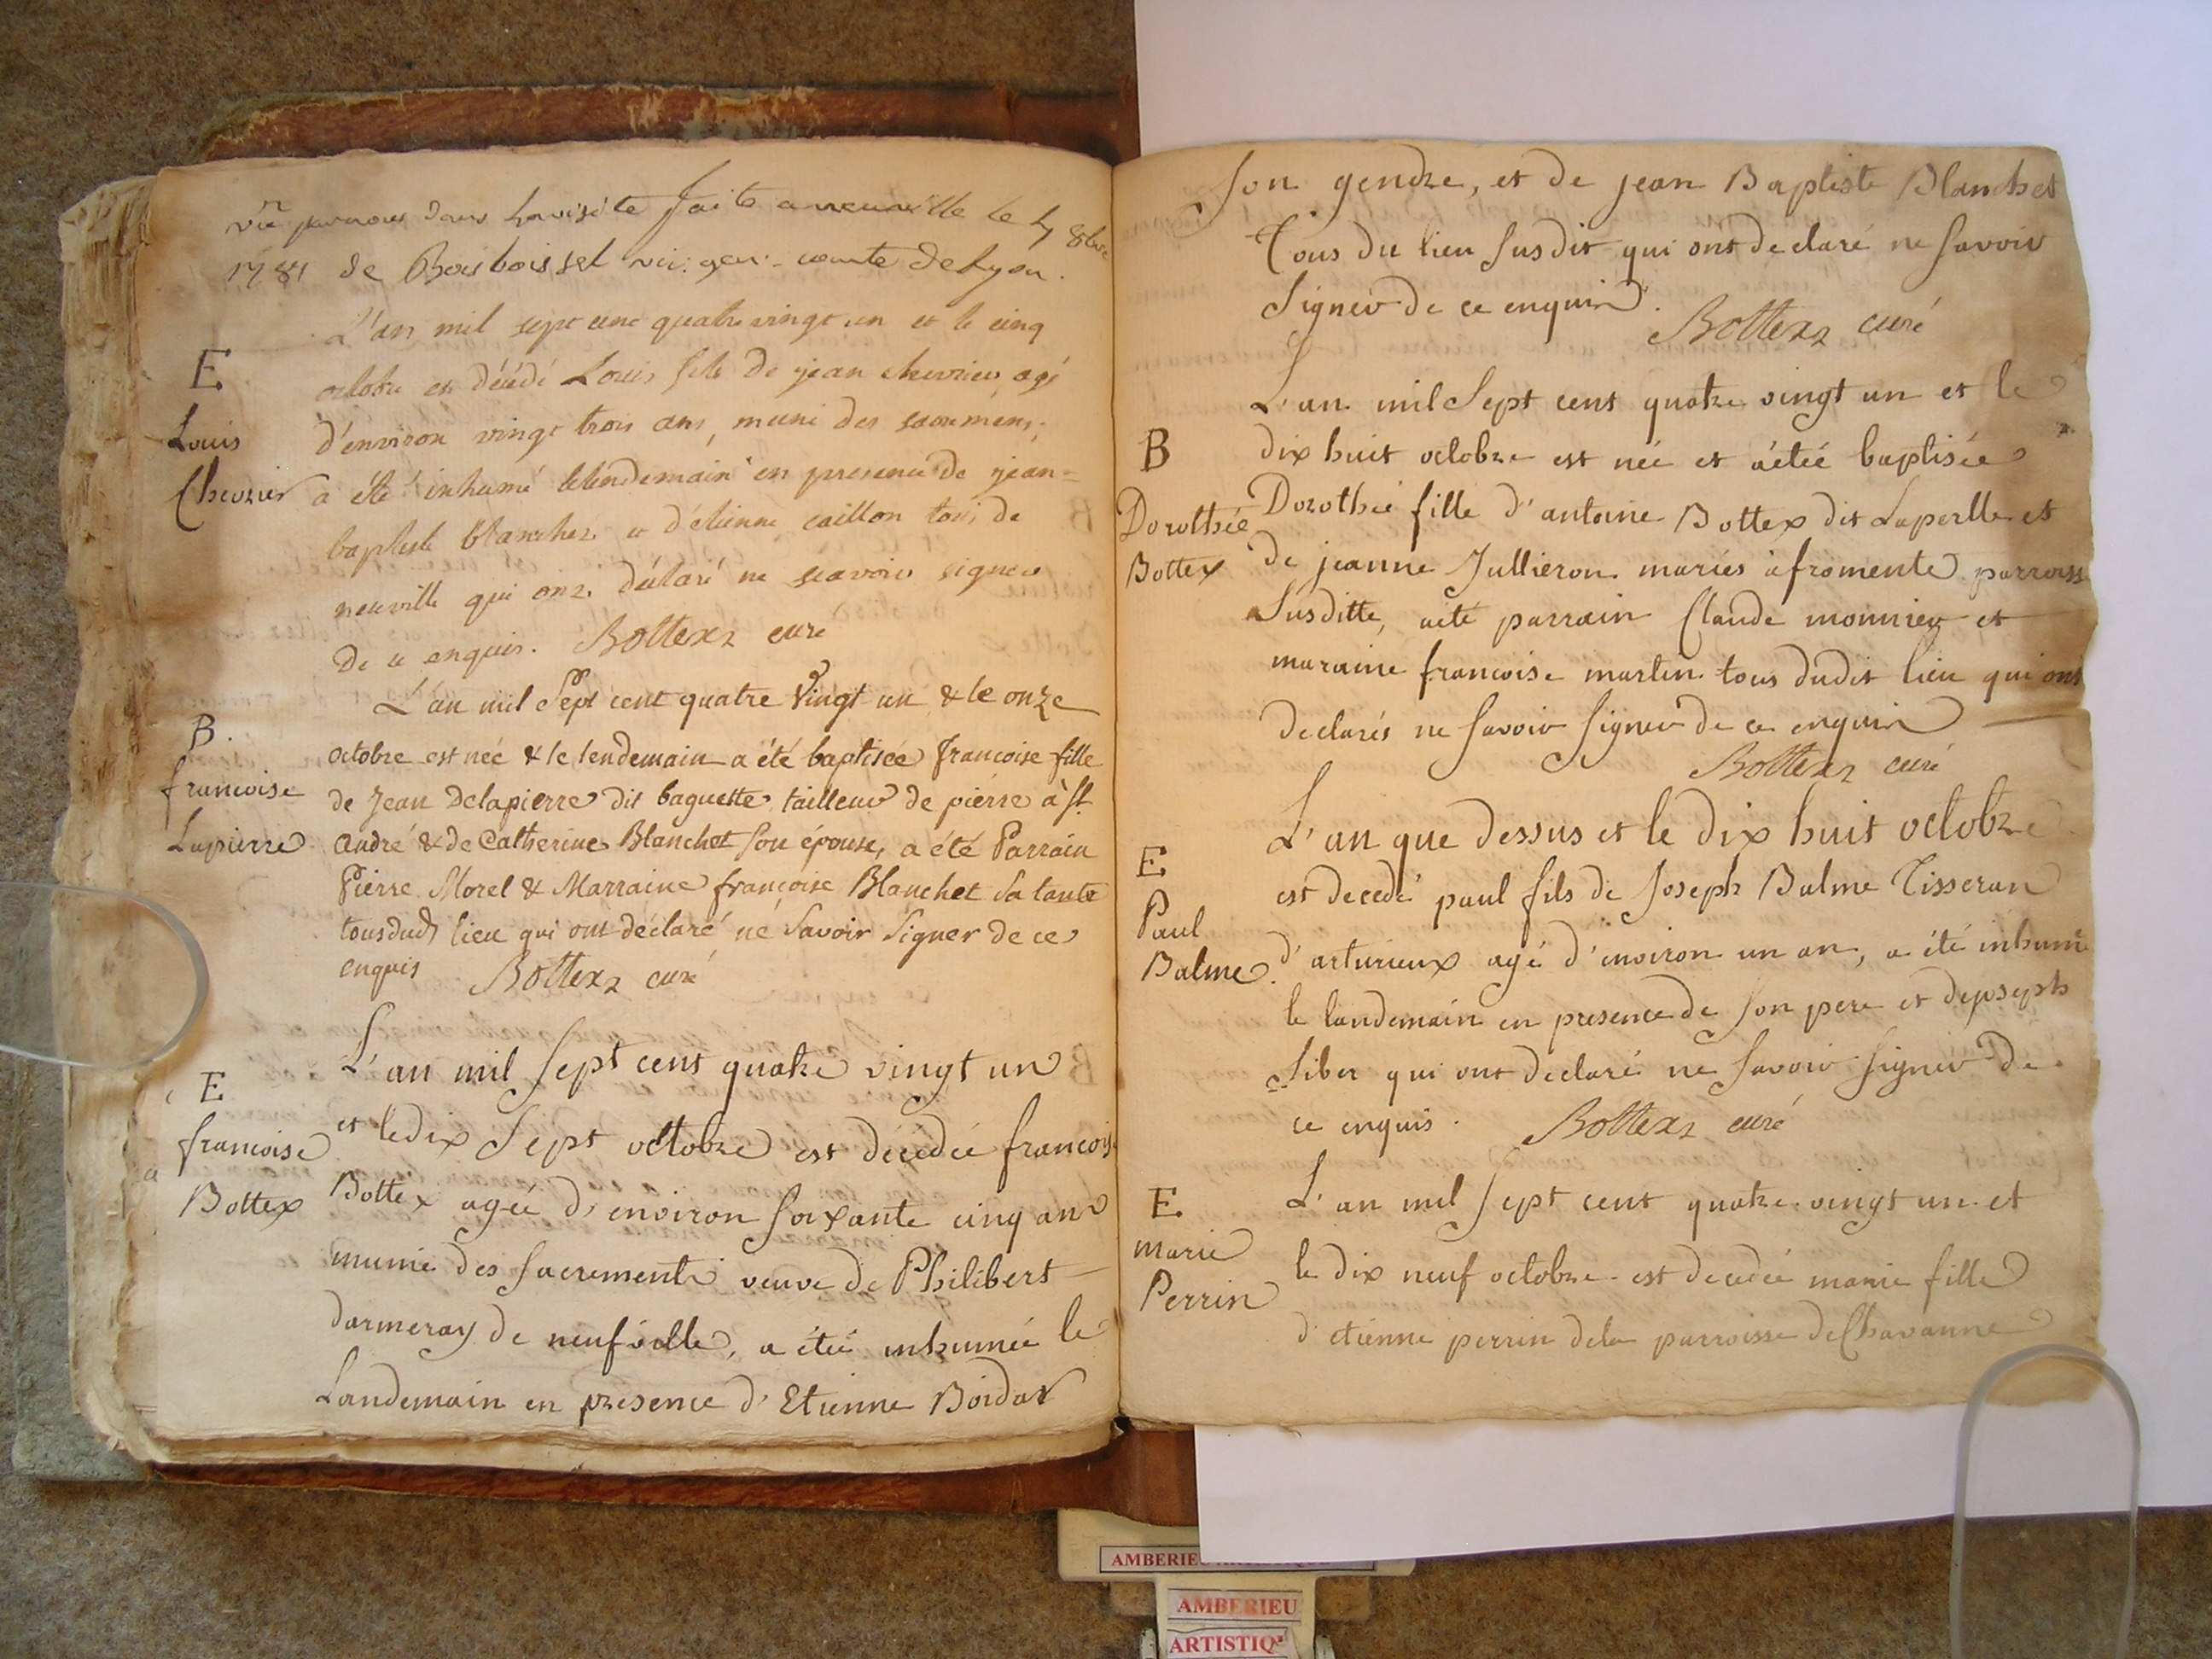 vû par nous dans la visite faite a neuville le 4 8bre
1781 de Boisboissel vic. gen. comte de Lyon.
L'an mil sept cent quatre vingt un et le cinq
E
octobre est décédé Louis fils de jean chevrier agé
Louis
d'environ vingt trois ans, muni des sacremens,
Chevrier
a été inhumé le lendemain en presence de jean-
baptiste blanchet et d'étienne caillon tous de
neuville qui ont déclaré ne scavoir signer
de ce enquis. Bottex curé
L'an mil Sept cent quatre Vingt un & le onze
B.
octobre est née & le lendemain a été baptisée francoise fille
francoise
de Jean Delapierre dit baguette tailleur de pierre à St
Lapierre
andré & de Catherine Blanchet son épouse, a été Parrain
Pierre Morel & Marraine françoise Blanchet sa tante
tous dud lieu qui ont déclaré ne Savoir Signer de ce
enquis Bottex curé
L'an mil sept cent quatre vingt un
E
et le dix Sept octobre est décédée francoise
francoise
Bottex agée d'environ soixante cinq ans
Bottex
munie des sacrements veuve de Philibert
darmeray de neufville, a étée inhumée le
Landemain en presence d'Etienne Boidar
son gendre, et de jean Baptiste Blanchet
Tous du lieu susdit qui ont declaré ne savoir
signer de ce enquis.
Bottex curé
L'an mil Sept cent quatre vingt un et le
B
dix huit octobre est née et a étée baptisée
Dorothée
Dorothée fille d'antoine Bottex dit Laperlle et
Bottex
de jeanne Jullieron mariés a fromente parroiss
Susditte, a eté parrain Claude monnier et
maraine francoise martin tous dudit lieu qui ont
declarés ne savoir signer de ce enquis
Bottex curé
L'an que dessus et le dix huit octobre
E
est decedé paul fils de Joseph Balme Tisseran
Paul
d'arturieux agé d'environ un an, a été inhumé
Balme.
le landemain en presence de son pere et de joseph
Siber qui ont declaré ne savoir signer de
ce enquis. Bottex curé
L'an mil sept cent quatre vingt un et
E
le dix neuf octobre est decedée marie fille
marie
Perrin
d'etienne perrin de la parroisse de Chavanne
AMBERIEU
ARTISTIQ